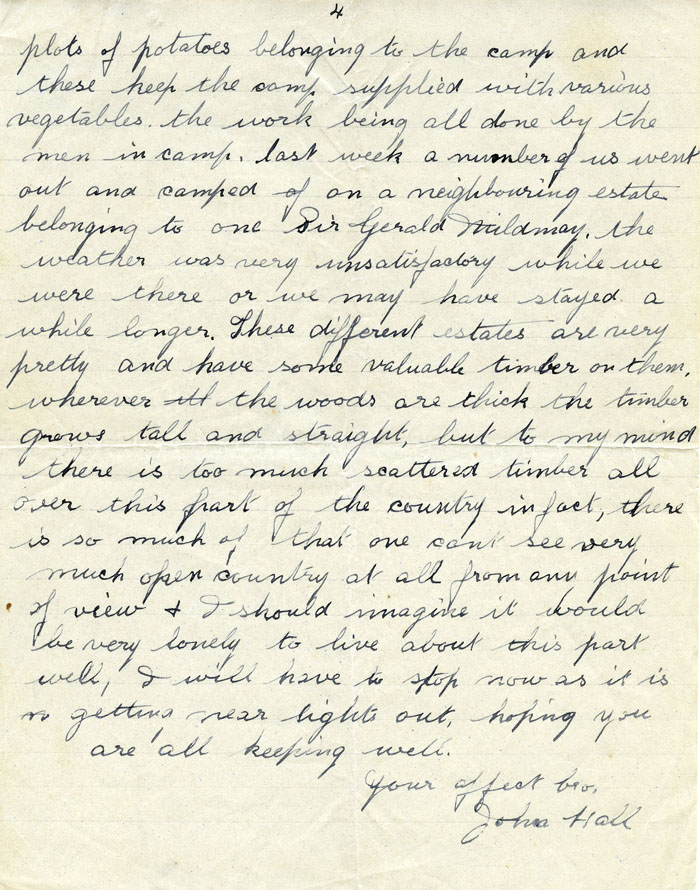 4
plots of potatoes belonging to the camp and
these keep the camp supplied with various
vegetables. the work being all done by the
men in camp. last week a number of us went
out and camped of on a neighbouring estate
belonging to one Sir Gerald Mildmay. the
weather was very unsatisfactory while we
were there or we may have stayed a
while longer. These different estates are very
pretty and have some valuable timber on them,
wherever the woods are thick the timber
grows tall and straight, but to my mind
there is too much scattered timber all
over this part of the country in fact, there
is so much of that one cant see very
much open country at all from any point
of view & I should imagine it would
be very lonely to live about this part
well, I will have to stop now as it is
getting near lights out, hoping you
are all keeping well.
Your affect bro.
John Hall